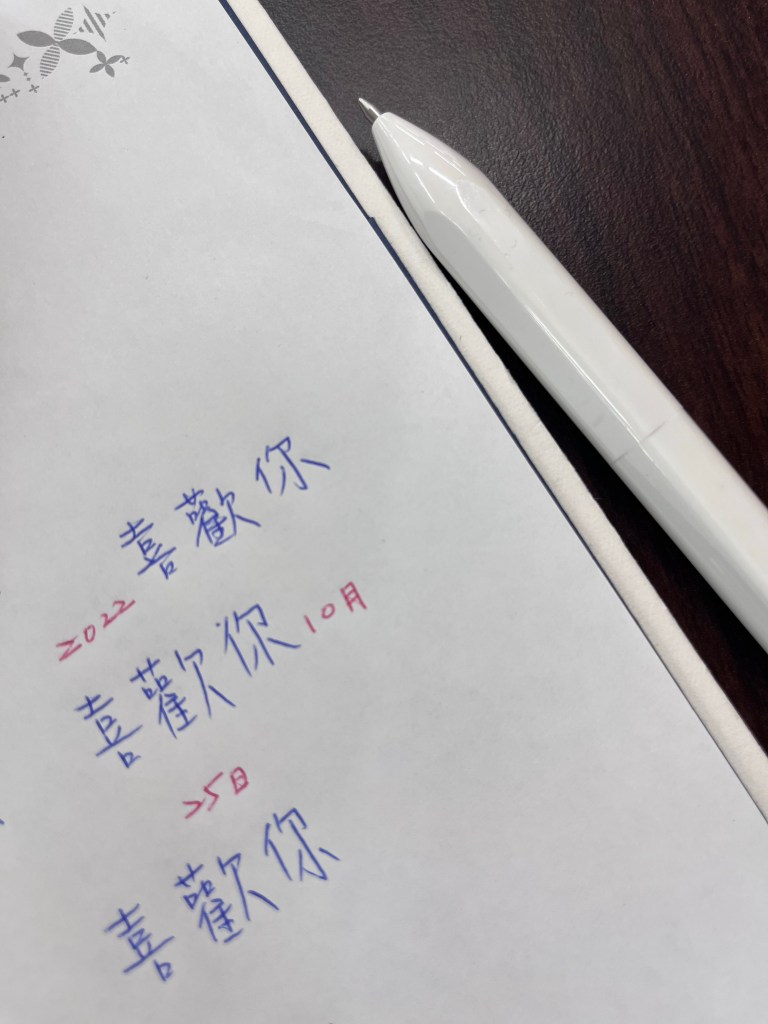 喜歡你
2022
喜歡你 10月
25日
喜歡你